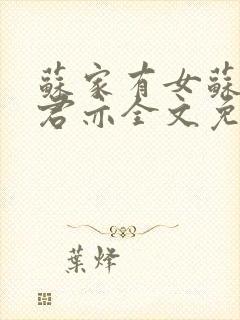 蘇家有女蘇
君亦全文免
葉烽